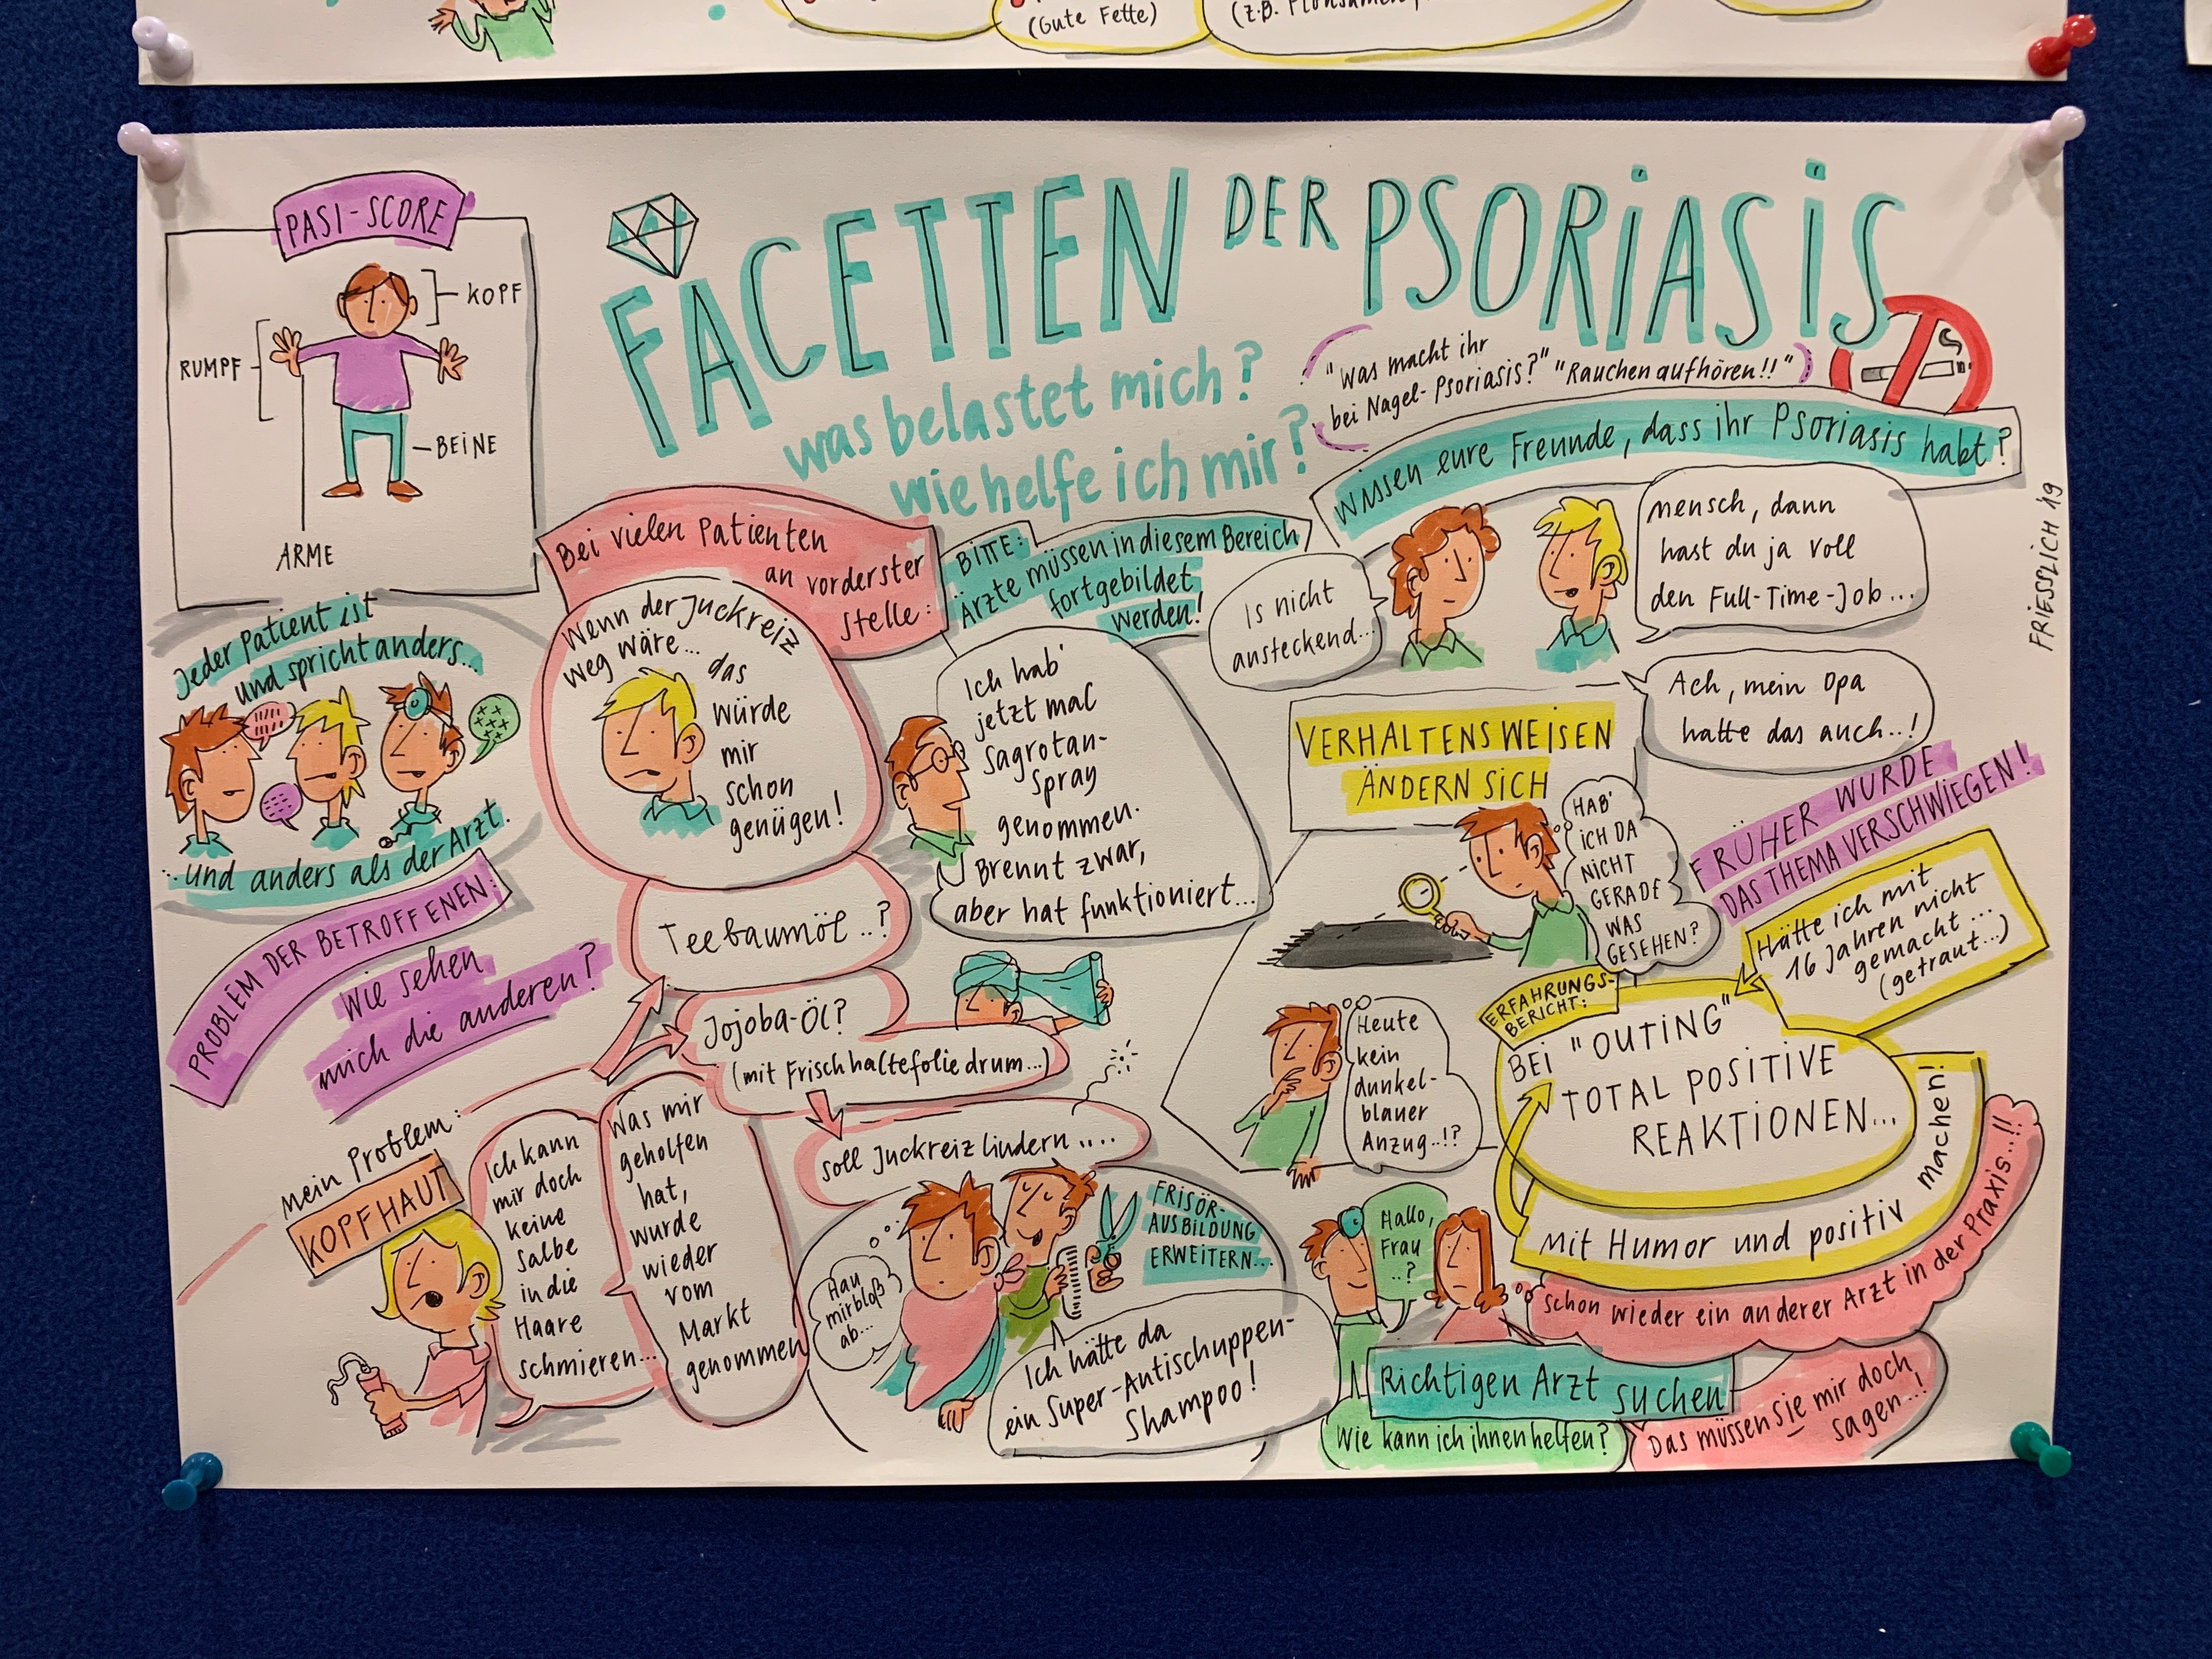 (Gute Fette)
(z.B.
PASI-SCORE
KOPF
RUMPF
BEINE
ARME
FACETTEN DER PSORIASIS
was belastet mich?
wie helfe ich mir?
"Was macht ihr
bei Nagel-Psoriasis?" "Rauchen aufhören!!"
Wissen eure Freunde, dass ihr Psoriasis habt?
Is nicht
ansteckend...
mensch, dann
hast du ja voll
den Full-Time-Job...
Ach, mein Opa
hatte das auch..!
FRIESSLICH 19
Jeder Patient ist
und spricht anders...
...und anders als der Arzt.
Bei vielen Patienten
an vorderster
Stelle:
Wenn der Juckreiz
weg wäre...
das
würde
mir
schon
genügen!
BITTE:
Ärzte müssen in diesem Bereich
fortgebildet
werden!
Ich hab'
jetzt mal
Sagrotan-
Spray
genommen.
Brennt zwar,
aber hat funktioniert...
VERHALTENSWEISEN
ÄNDERN SICH
HAB'
ICH DA
NICHT
GERADE
WAS
GESEHEN?
Heute
kein
dunkel-
blauer
Anzug..!?
FRÜHER WURDE
DAS THEMA VERSCHWIEGEN!
Hätte ich mit
16 Jahren nicht
gemacht...
(getraut...)
ERFAHRUNGS-
BERICHT:
BEI "OUTING"
TOTAL POSITIVE
REAKTIONEN...
Mit Humor und positiv machen!
PROBLEM DER BETROFFENEN:
Wie sehen
mich die anderen?
Teebaumöl..?
Jojoba-Öl?
(mit Frischhaltefolie drum...)
soll Juckreiz lindern....
Mein Problem:
KOPFHAUT
Ich kann
mir doch
keine
Salbe
in die
Haare
schmieren...
Was mir
geholfen
hat,
wurde
wieder
vom
Markt
genommen
FRISÖR-
AUSBILDUNG
ERWEITERN...
Hau
mir bloß
ab...
Ich hätte da
ein Super-Antischuppen-
Shampoo!
Hallo,
Frau
..?
Schon wieder ein anderer Arzt in der Praxis..!!
Richtigen Arzt suchen
Wie kann ich ihnen helfen?
Das müssen Sie mir doch
sagen..!